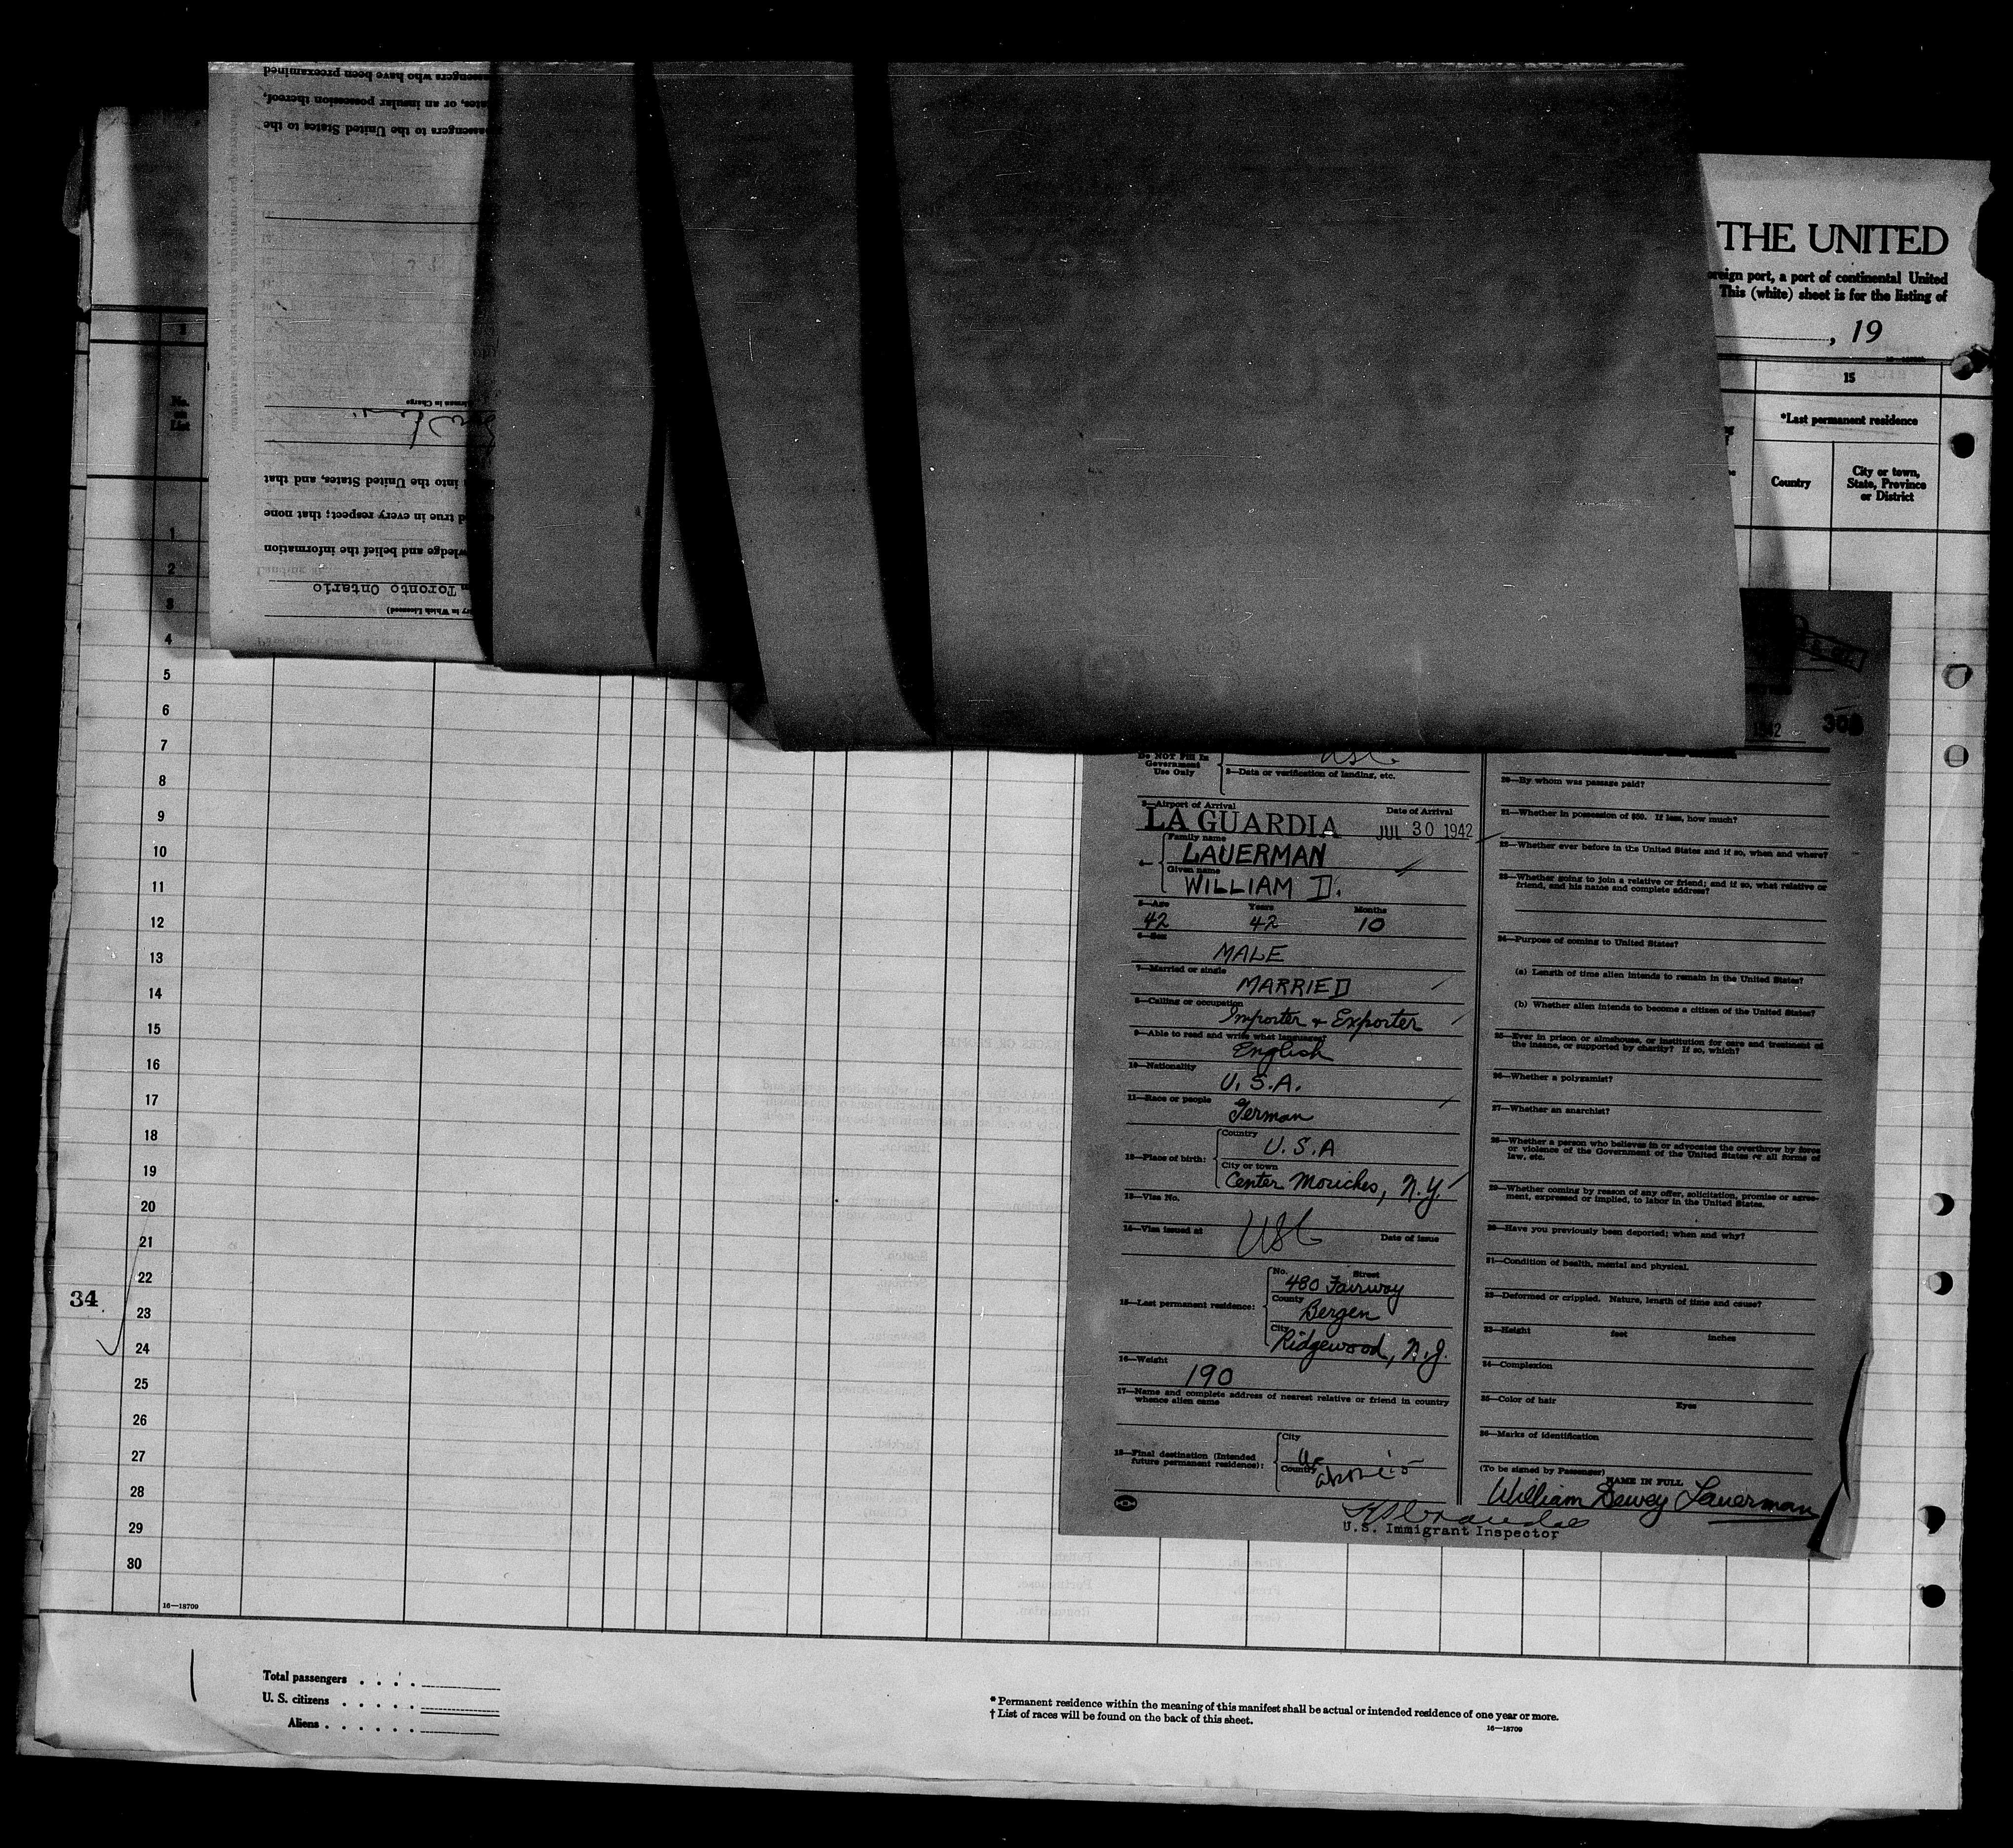 THE UNITED
oreign port, a port of continental United
This (white) sheet is for the listing of
, 19
15
*Last permanent residence
Country
City or town,
State, Province
or District
No.
on
List
passengers who have been preexamined
ates, or an insular possession thereof,
passengers to the United States to the
Airman in Charge
into the United States, and that
d true in every respect; that none
wledge and belief the information
Toronto Ontario
ry in Which Licensed)
1
2
3
4
5
6
7
8
9
10
11
12
13
14
15
16
17
18
19
20
21
22
23
24
25
26
27
28
29
30
34
16—18709
Total passengers
U. S. citizens
Aliens
* Permanent residence within the meaning of this manifest shall be actual or intended residence of one year or more.
† List of races will be found on the back of this sheet.
16—18709
Do NOT Fill In
Government
Use Only
2—Data or verification of landing, etc.
3—Airport of Arrival
Date of Arrival
LA GUARDIA JUL 30 1942
4—
Family name
LAUERMAN
Given name
WILLIAM D.
5—Age Years Months
42 42 10
6—Sex
MALE
7—Married or single
MARRIED
8—Calling or occupation
Importer & Exporter
9—Able to read and write what languages?
English
10—Nationality
U.S.A.
11—Race or people
German
12—Place of birth:
Country
U.S.A
City or town
Center Moriches, N.Y.
13—Visa No.
14—Visa issued at
USC
Date of issue
15—Last permanent residence:
No. Street
480 Fairway
County
Bergen
City
Ridgewood, N.J.
16—Weight
190
17—Name and complete address of nearest relative or friend in country
whence alien came
18—Final destination (Intended
future permanent residence):
City
Country
20—By whom was passage paid?
21—Whether in possession of $50. If less, how much?
22—Whether ever before in the United States and if so, when and where?
23—Whether going to join a relative or friend; and if so, what relative or
friend, and his name and complete address?
24—Purpose of coming to United States?
(a) Length of time alien intends to remain in the United States?
(b) Whether alien intends to become a citizen of the United States?
25—Ever in prison or almshouse, or institution for care and treatment of
the insane, or supported by charity? If so, which?
26—Whether a polygamist?
27—Whether an anarchist?
28—Whether a person who believes in or advocates the overthrow by force
or violence of the Government of the United States or all forms of
law, etc.
29—Whether coming by reason of any offer, solicitation, promise or agree-
ment, expressed or implied, to labor in the United States.
30—Have you previously been deported; when and why?
31—Condition of health, mental and physical.
32—Deformed or crippled. Nature, length of time and cause?
33—Height feet inches
34—Complexion
35—Color of hair Eyes
36—Marks of identification
(To be signed by Passenger)
NAME IN FULL
William Dewey Lauerman
U.S. Immigrant Inspector